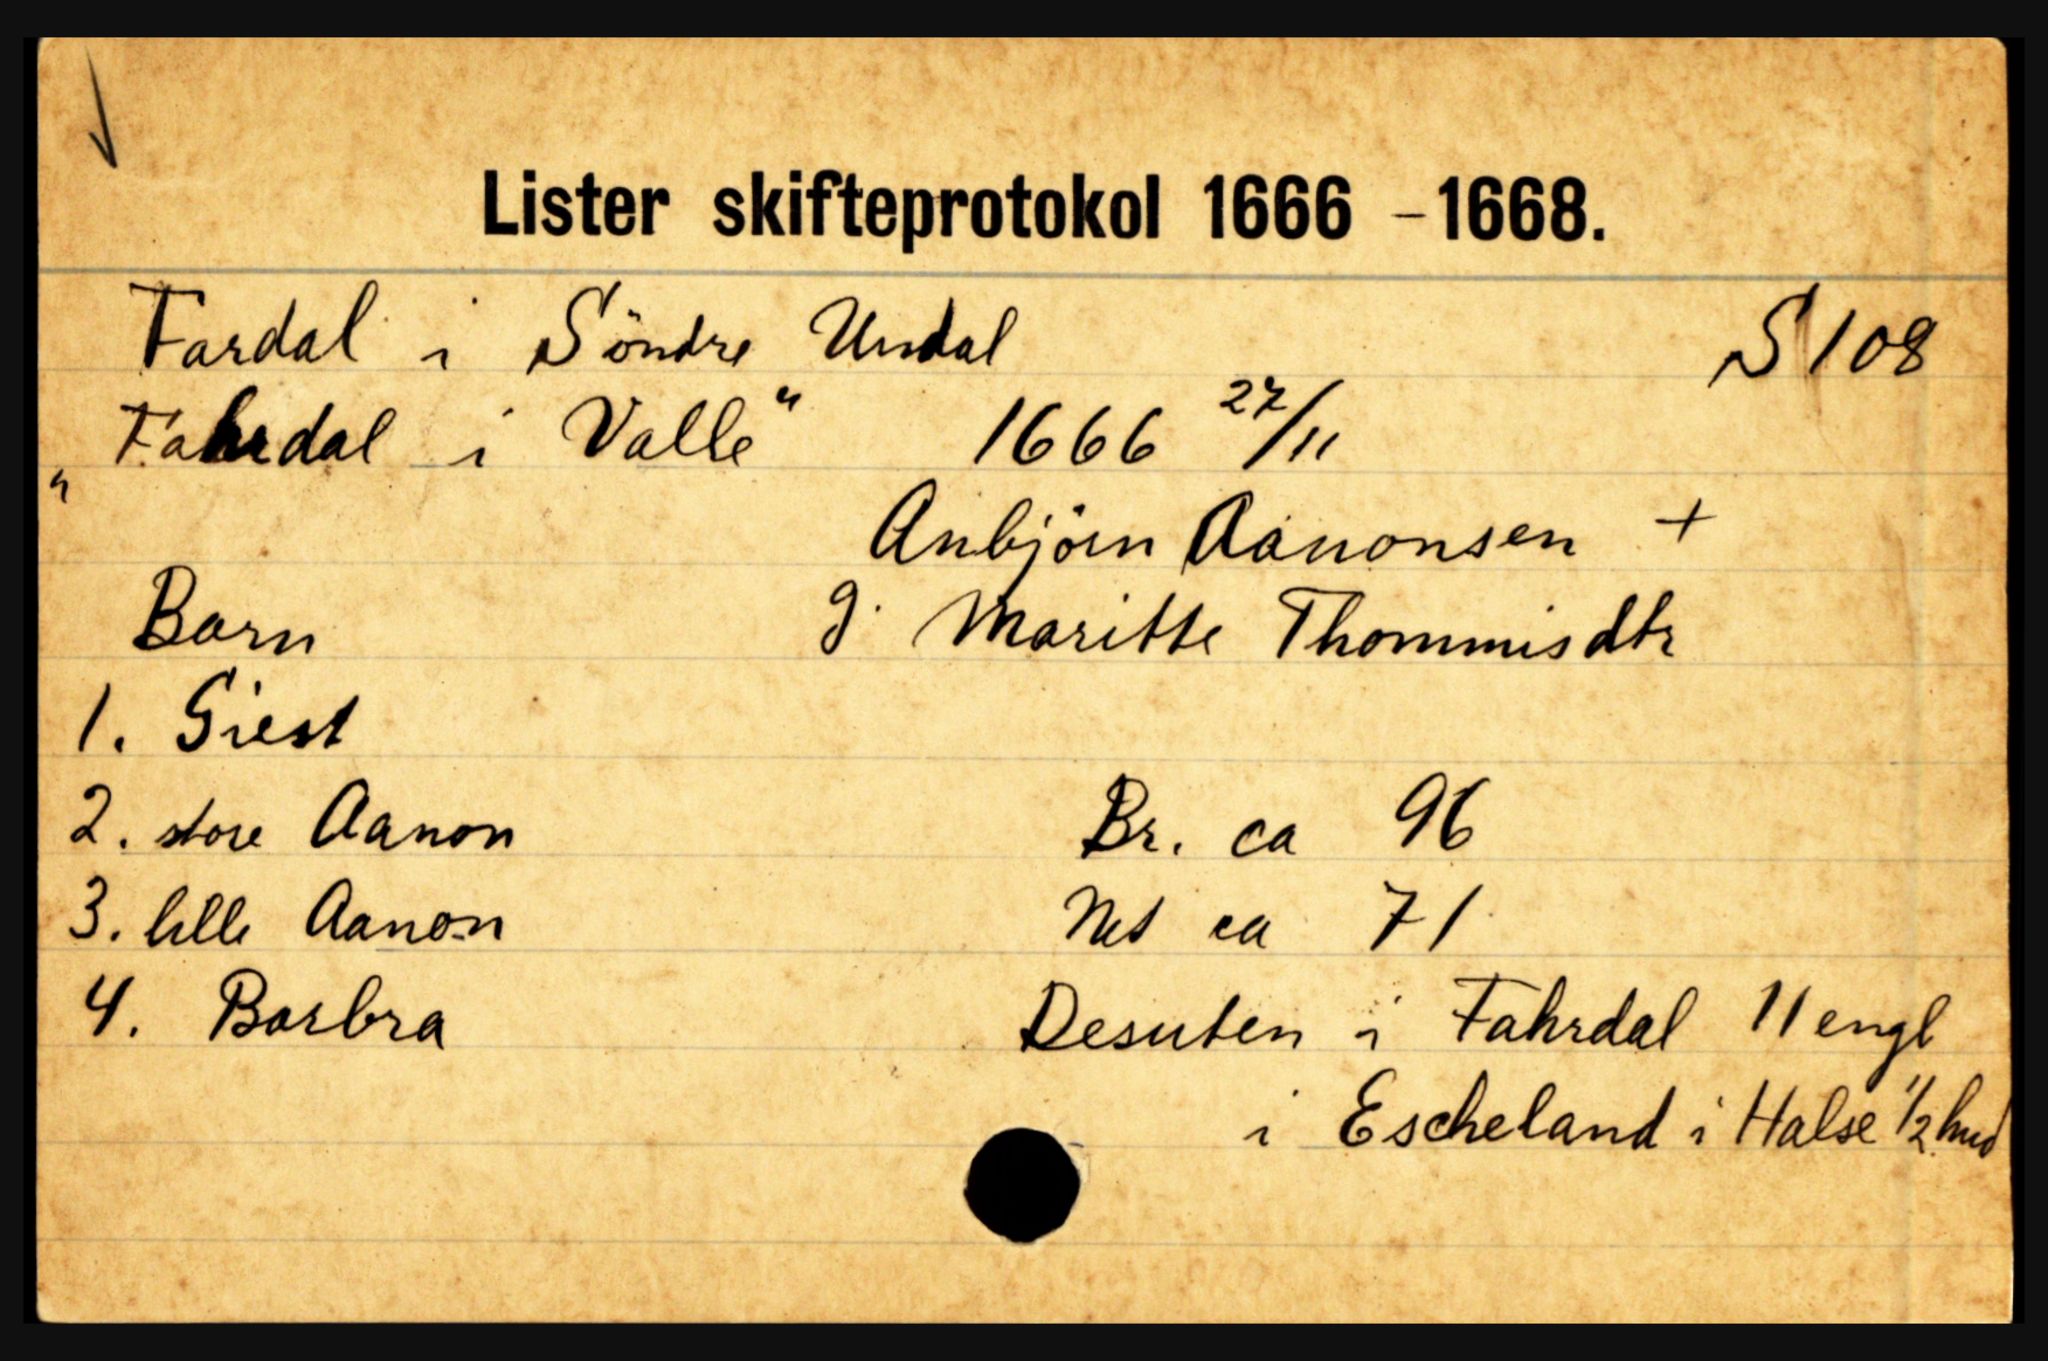 Lister skifteprotokol 1666 - 1668.
Fardal i Söndre Undal S 108
"Fahrdal i Valle" 1666 27/11
Anbjörn Aanonsen +
Barn g. Maritte Thommisdtr
1. Giest
2. store Aanon Br. ca 96
3. lille Aanon Net ca 71
4. Barbra Desuten i Fahrdal 11 engl
i Escheland i Halse 1/2 hud